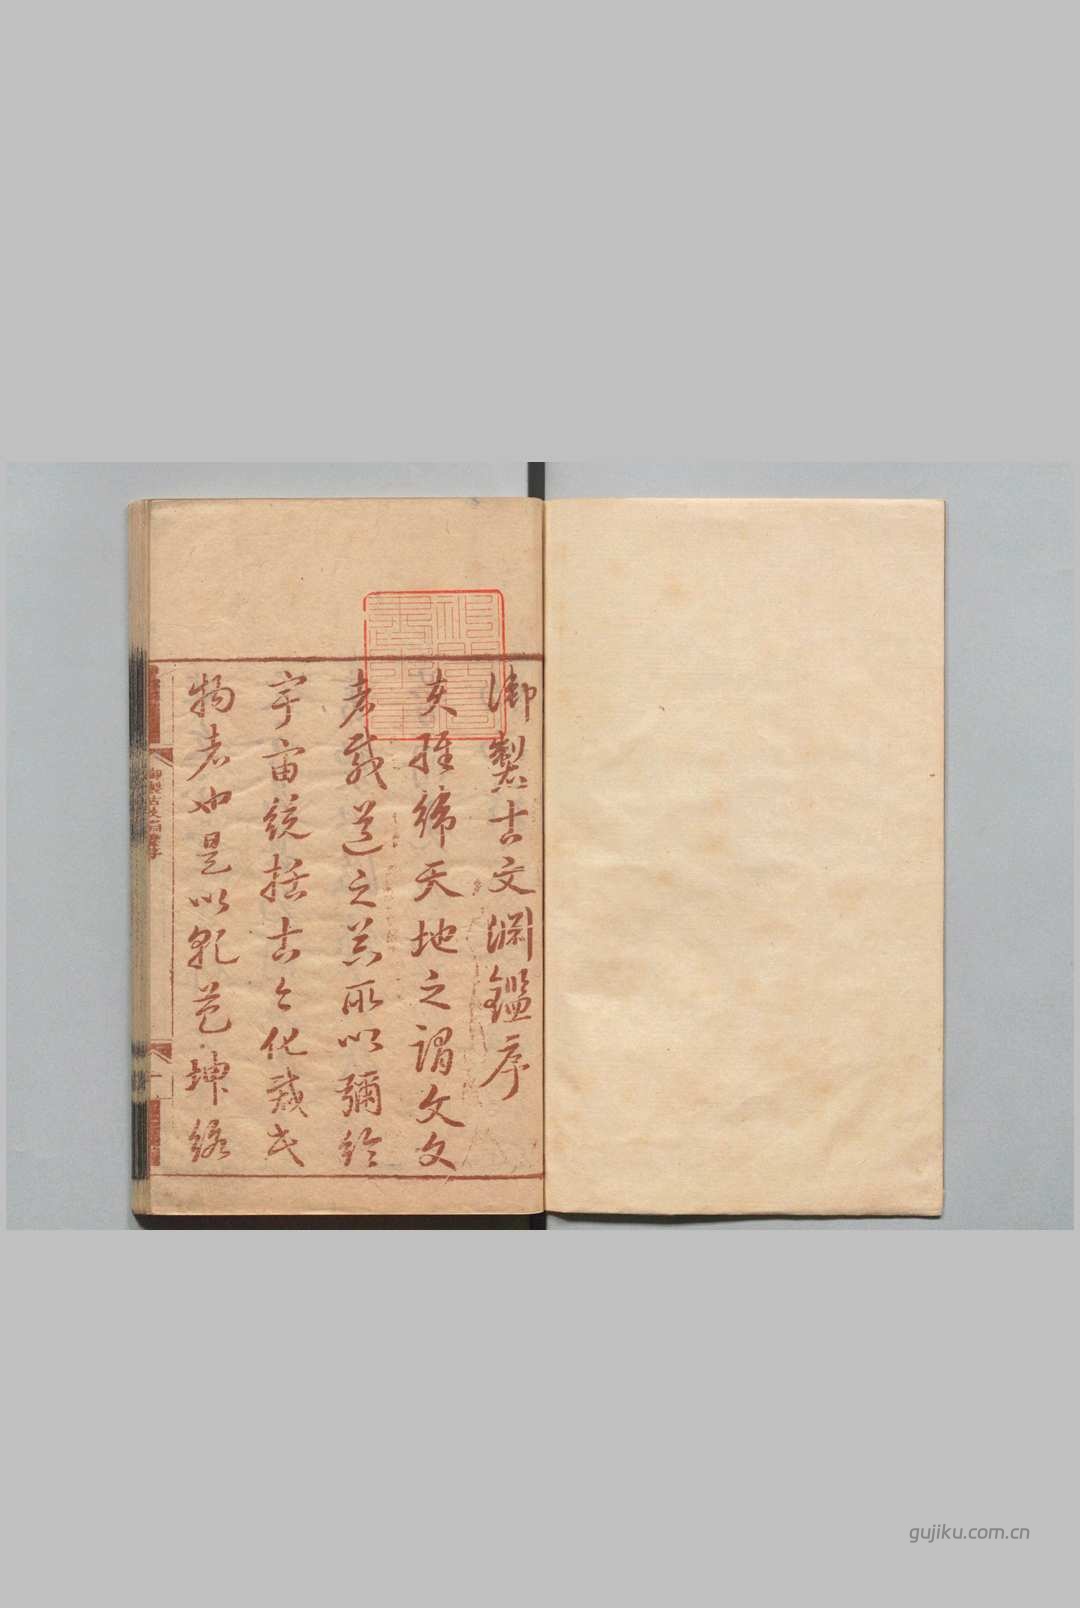 御製古文淵鑑序
夫經緯天地之謂文文
者載道之器所以彌綸
宇宙統括古今化裁民
物者也是以乾苞坤絡
御製古文淵鑒序
一
gujiku.com.cn